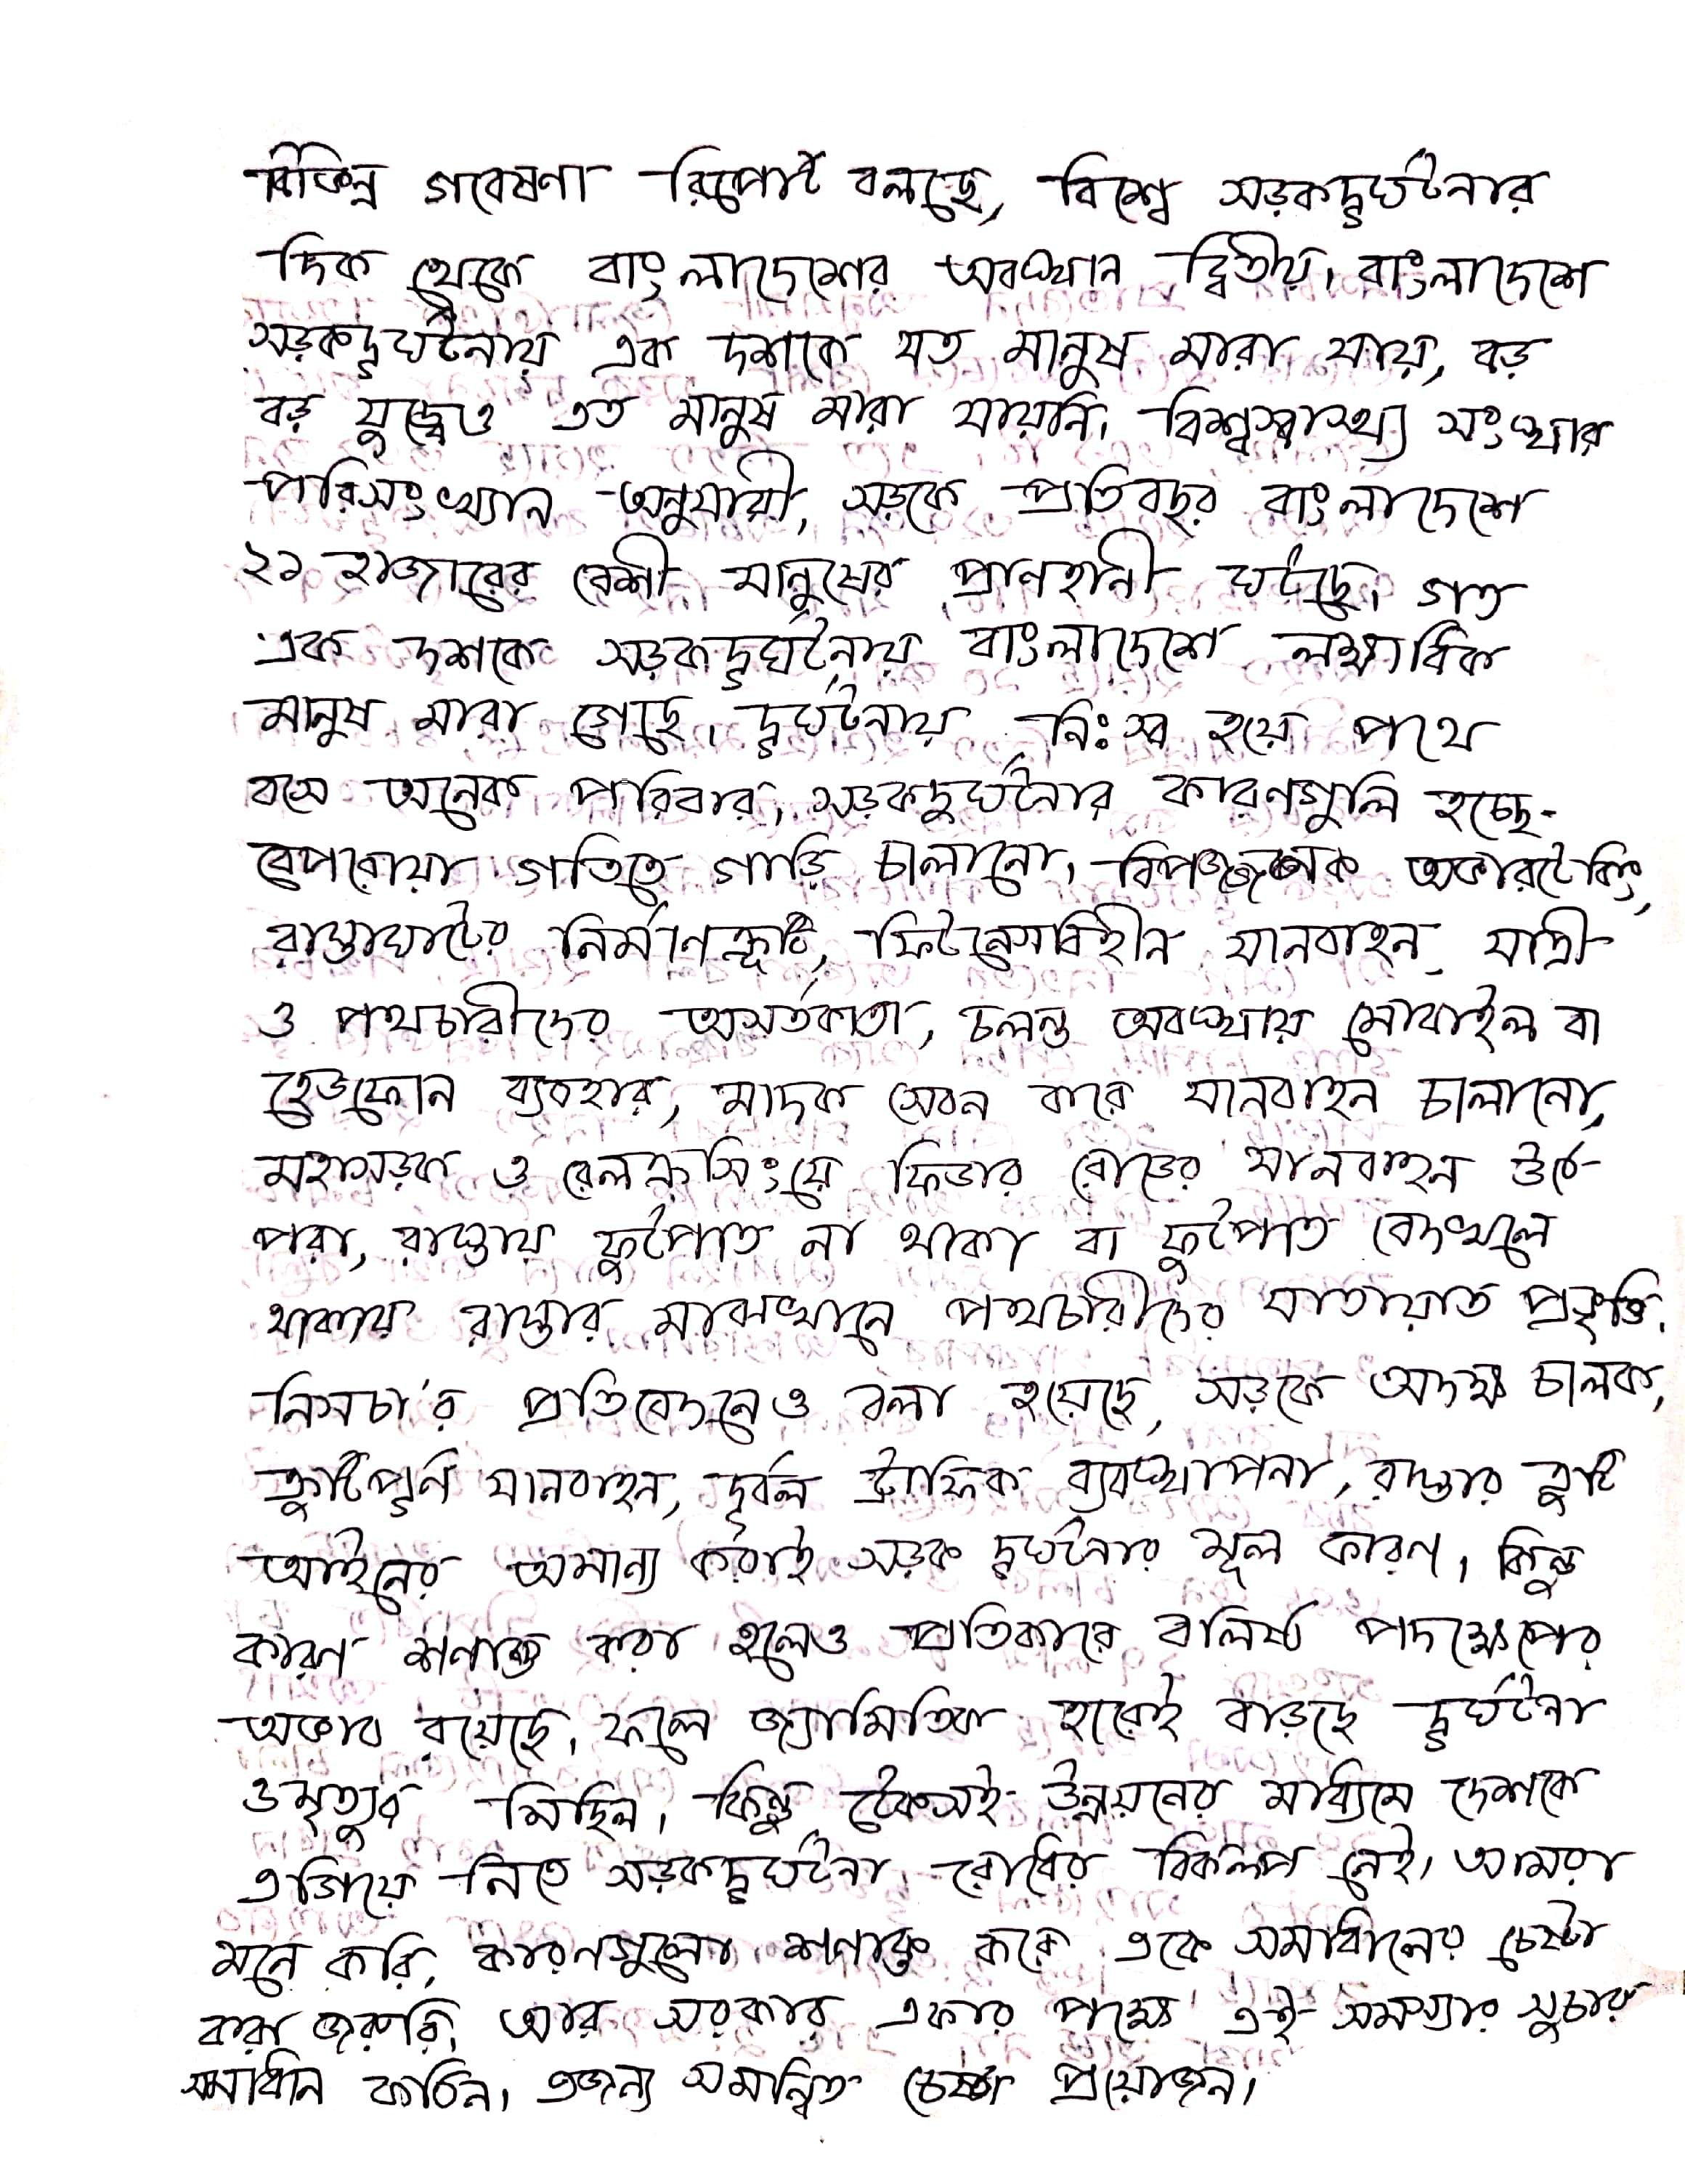 বিভিন্ন গবেষণা রিপোর্ট বলছে, বিশ্বে সড়কদূর্ঘটনার
দিক থেকে বাংলাদেশের অবস্থান দ্বিতীয়। বাংলাদেশে
সড়কদূর্ঘটনায় এক দশকে যত মানুষ মারা যায়, বড়
বড় যুদ্ধেও তত মানুষ মারা যায়নি। বিশ্বস্বাস্থ্য সংস্থার
পরিসংখ্যান অনুযায়ী, সড়কে প্রতিবছর বাংলাদেশে
২১ হাজারের বেশী মানুষের প্রাণহানী ঘটছে। গত
এক দশকে সড়কদূর্ঘটনায় বাংলাদেশে লক্ষাধিক
মানুষ মারা গেছে। দূর্ঘটনায় নিঃস্ব হয়ে পথে
বসে অনেক পরিবার। সড়কদুর্ঘটনার কারণগুলি হচ্ছে-
বেপরোয়া গতিতে গাড়ি চালানো, বিপজ্জনক অভারটেকিং,
রাস্তাঘাটের নির্মাণত্রূটি, ফিটনেসবিহীন যানবাহন, যাত্রী
ও পথচারীদের অসর্তকতা, চলন্ত অবস্থায় মোবাইল বা
হেডফোন ব্যবহার, মাদক সেবন করে যানবাহন চালানো,
মহাসড়ক ও রেলক্রসিংয়ে ফিডার রোডের যানবাহন উঠে-
পরা, রাস্তায় ফুটপাত না থাকা বা ফুটপাত বেদখলে
থাকায় রাস্তার মাঝখানে পথচারীদের যাতায়াত প্রভৃত্তি।
নিসচা'র প্রতিবেদনেও বলা হয়েছে, সড়কে অদক্ষ চালক,
ত্রুটিপূর্ণ যানবাহন, দূর্বল ট্রাফিক ব্যবস্থাপনা, রাস্তার ত্রুটি
আইনের অমান্য করাই সড়ক দূর্ঘটনার মূল কারণ। কিন্তু
কারণ শণাক্ত করা হলেও প্রতিকারে বলিষ্ট পদক্ষেপের
অভাব রয়েছে। ফলে জ্যামিতিক হারেই বাড়ছে দূর্ঘটনা
ও মৃত্যুর মিছিল। কিন্তু টেকসই উন্নয়নের মাধ্যমে দেশকে
এগিয়ে নিতে সড়কদূর্ঘটনা রোধের বিকল্প নেই। আমরা
মনে করি, কারণগুলো শণাক্ত করে একে সমাধানের চেষ্টা
করা জরুরি। আর সরকার একার পক্ষে এই সমস্যার সুচারু
সমাধান কঠিন। এজন্য সমান্বিত চেষ্টা প্রয়োজন।